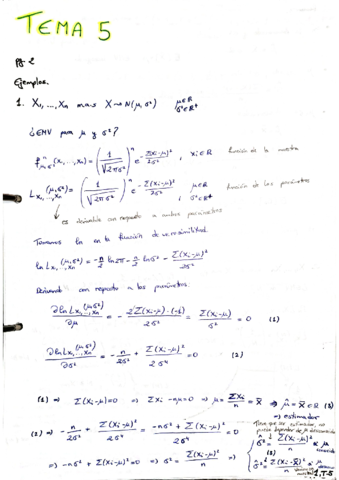 TEMA 5
pg 2
Ejemplos.
1. X₁, ..., Xₙ m.a.s X ~> N(μ, σ²) μ∈ℝ σ²∈ℝ⁺
¿EMV para μ y σ²?
f^n_{μ,σ²}(x₁, ..., xₙ) = (1/√(2πσ²))ⁿ e^{-Σ(xi-μ)²/2σ²}, xi∈ℝ función de la muestra
L_{x₁,...,xₙ}(μ,σ²) = (1/√(2πσ²))ⁿ e^{-Σ(xi-μ)²/2σ²}, μ∈ℝ σ²∈ℝ⁺ función de los parámetros
es derivable con respecto a ambos parámetros
Tomamos ln en la función de verosimilitud.
ln L_{x₁,...,xₙ}(μ,σ²) = -n/2 ln 2π - n/2 ln σ² - Σ(xi-μ)²/2σ²
Derivando con respecto a los parámetros.
∂ln L_{x₁,...,xₙ}(μ,σ²)/∂μ = - 2Σ(xi-μ)·(-1)/2σ² = Σ(xi-μ)/σ² = 0 (1)
∂ln L_{x₁,...,xₙ}(μ,σ²)/∂σ² = -n/2σ² + Σ(xi-μ)²/2σ⁴ = 0 (2)
(1) ⇒ Σ(xi-μ)=0 ⇒ Σxi - nμ = 0 ⇒ μ = Σxi/n = x̄ ⇒ μ̂ = X̄ ∈ ℝ (3)
⇒ estimador
(2) ⇒ -n/2σ² + Σ(xi-μ)²/2σ⁴ = (-nσ² + Σ(xi-μ)²)/2σ⁴ = 0
⇒ -nσ² + Σ(xi-μ)² = 0 ⇒ σ² = Σ(xi-μ)²/n ⇒
σ̂² = Σ(Xi-μ)²/n si μ conocida
σ̂² = Σ(Xi-X̄)²/n si μ desconocida
1.T-5